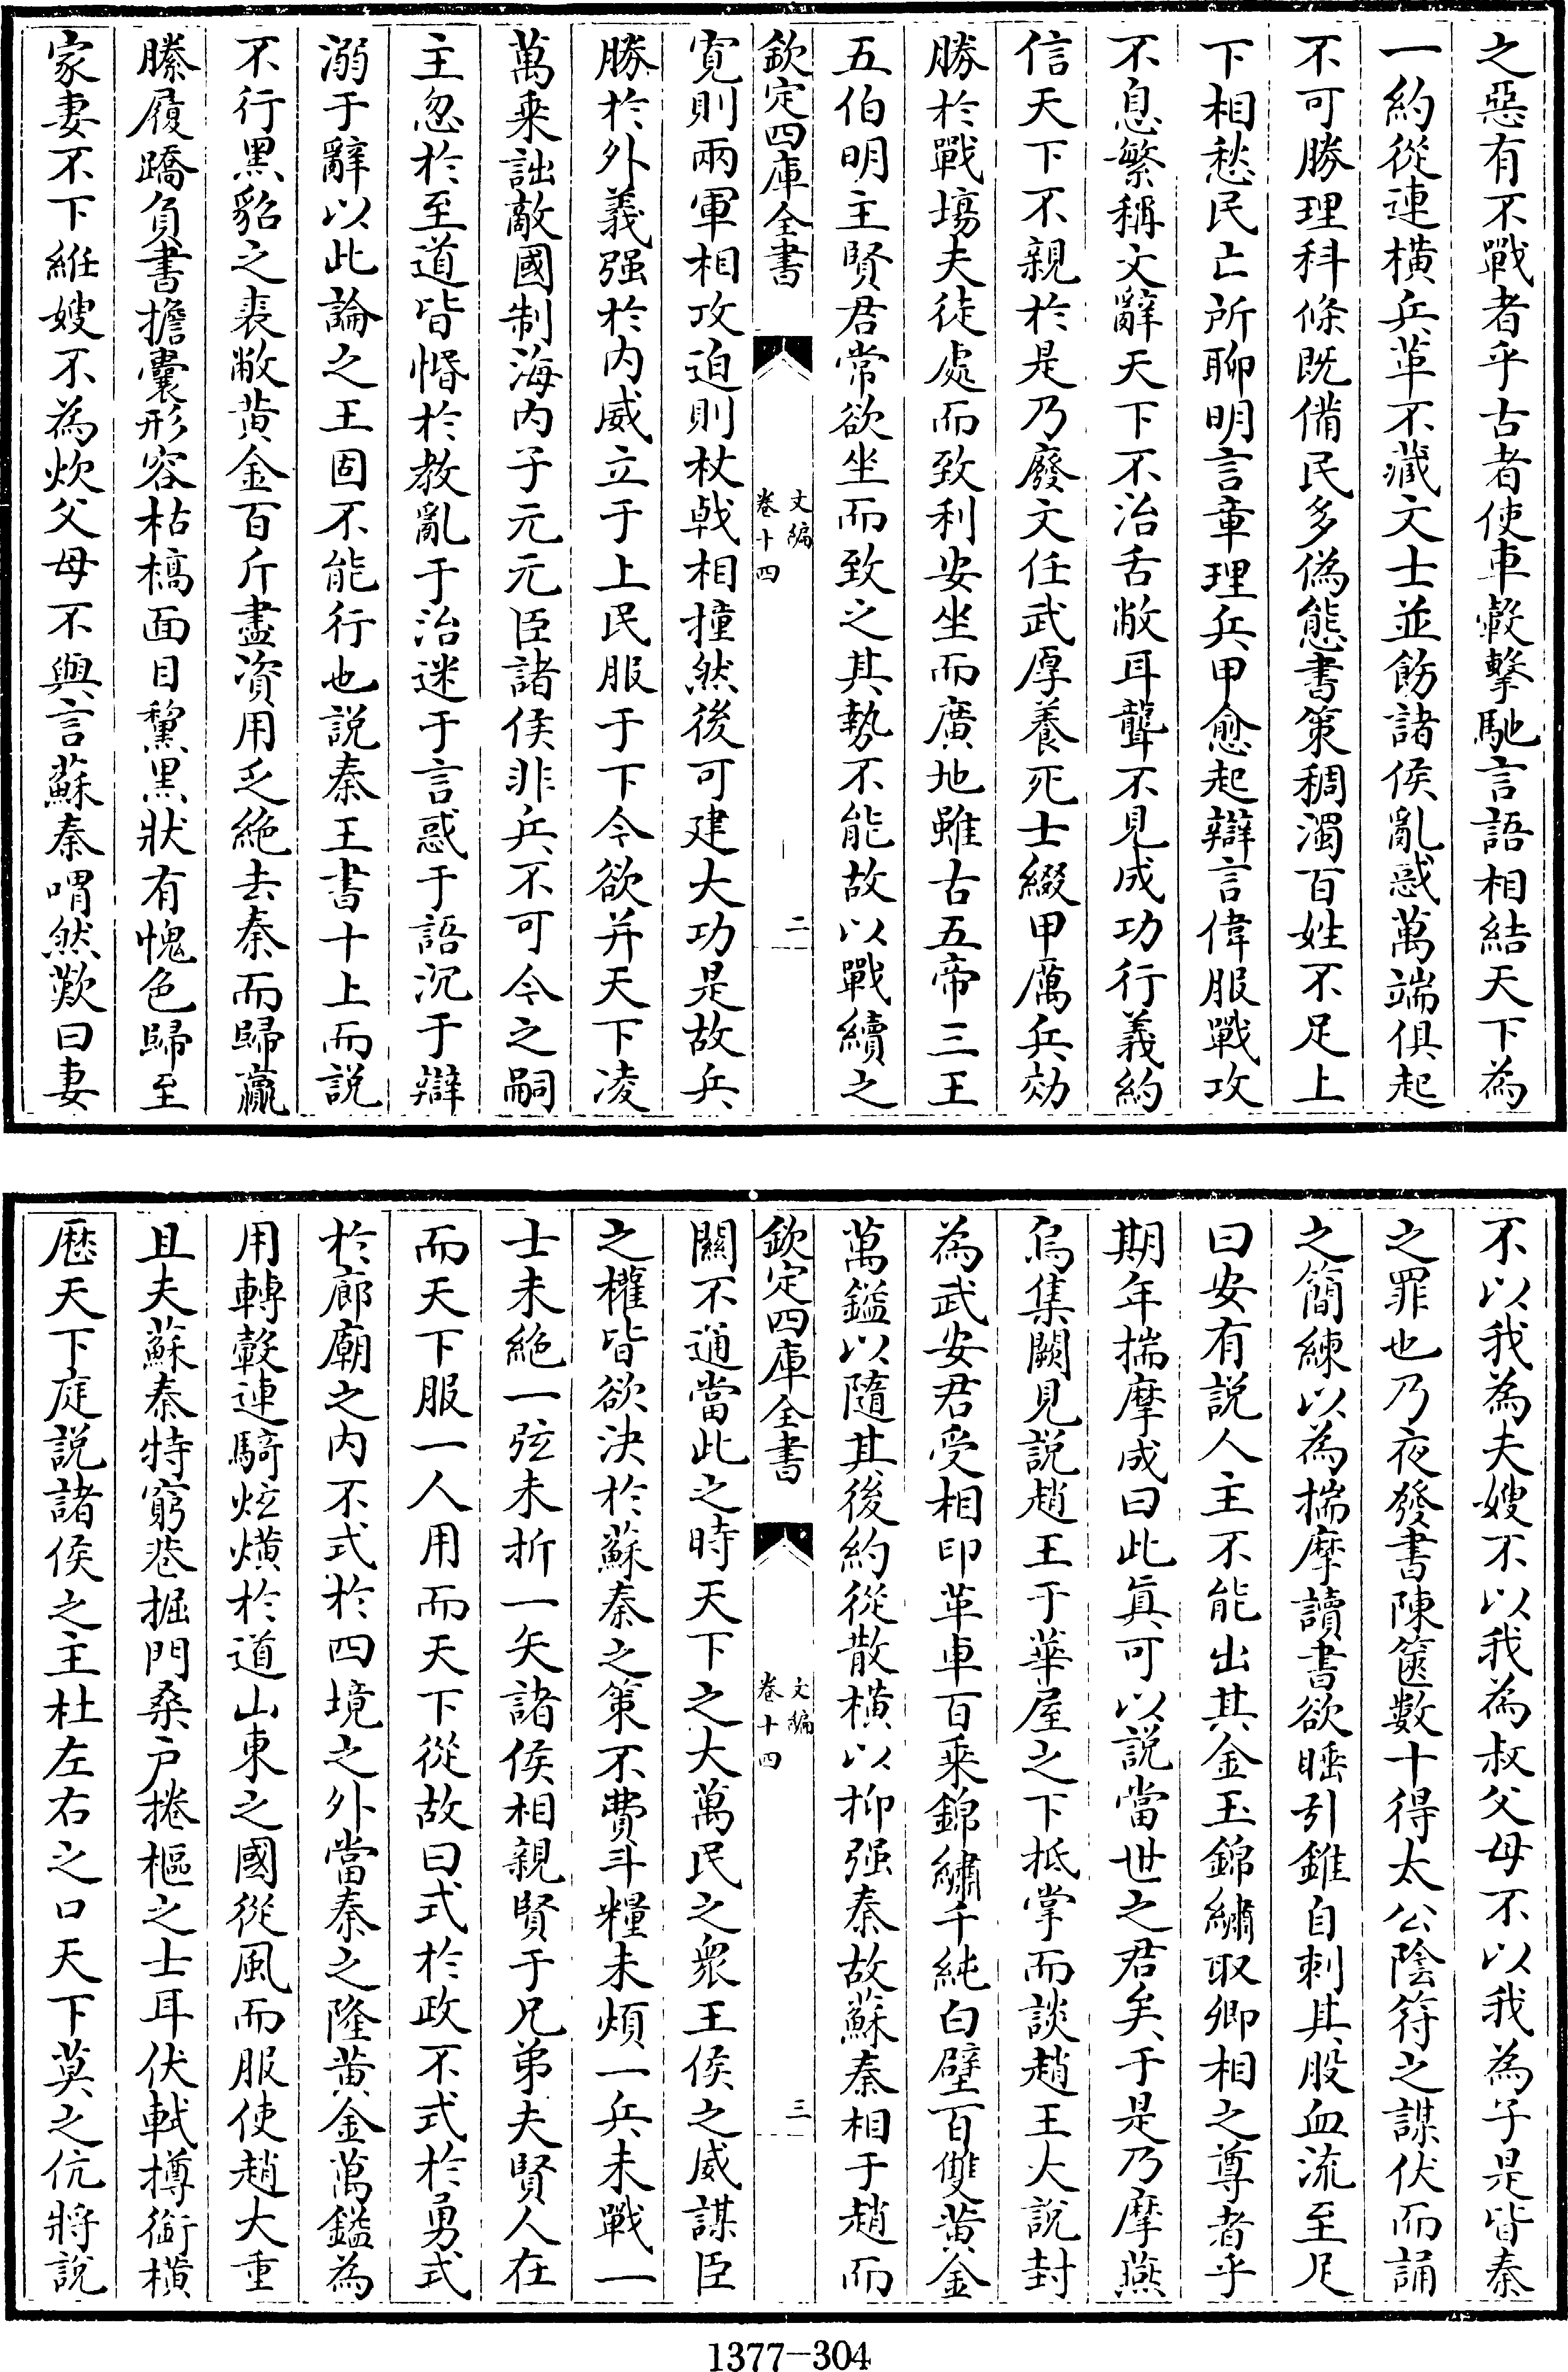 之惡有不戰者乎古者使車轂擊馳言語相結天下為
一約從連橫兵革不藏文士並飭諸侯亂惑萬端俱起
不可勝理科條既備民多偽態書策稠濁百姓不足上
下相愁民亡所聊明言章理兵甲愈起辯言偉服戰攻
不息繁稱文辭天下不治舌敝耳聾不見成功行義約
信天下不親於是乃廢文任武厚養死士綴甲厲兵効
勝於戰場夫徒處而致利安坐而廣地雖古五帝三王
五伯明主賢君常欲坐而致之其勢不能故以戰續之
欽定四庫全書
文編
卷十四
二
寛則兩軍相攻迫則杖戟相撞然後可建大功是故兵
勝於外義强於内威立于上民服于下今欲并天下凌
萬乗詘敵國制海内子元元臣諸侯非兵不可今之嗣
主忽於至道皆惛於教亂于治迷于言惑于語沉于辯
溺于辭以此論之王固不能行也説秦王書十上而説
不行黑貂之裘敝黄金百斤盡資用乏絶去秦而歸羸
縢履蹻負書擔囊形容枯槁面目黧黑狀有愧色歸至
家妻不下紝嫂不為炊父母不與言蘇秦喟然歎曰妻
不以我為夫嫂不以我為叔父母不以我為子是皆秦
之罪也乃夜發書陳篋數十得太公陰符之謀伏而誦
之簡練以為揣摩讀書欲睡引錐自刺其股血流至足
曰安有説人主不能出其金玉錦繡取卿相之尊者乎
期年揣摩成曰此真可以説當世之君矣于是乃摩燕
烏集闕見説趙王于華屋之下抵掌而談趙王大説封
為武安君受相印革車百乗錦繡千純白璧百雙黄金
萬鎰以隨其後約從散橫以抑强秦故蘇秦相于趙而
欽定四庫全書
文編
卷十四
三
關不通當此之時天下之大萬民之衆王侯之威謀臣
之權皆欲決於蘇秦之策不費斗糧未煩一兵未戰一
士未絶一弦未折一矢諸侯相親賢于兄弟夫賢人在
而天下服一人用而天下從故曰式於政不式於勇式
於廊廟之内不式於四境之外當秦之隆黄金萬鎰為
用轉轂連騎炫熿於道山東之國從風而服使趙大重
且夫蘇秦特窮巷掘門桑户捲樞之士耳伏軾撙銜橫
厯天下庭説諸侯之主杜左右之口天下莫之伉將説
1377—304